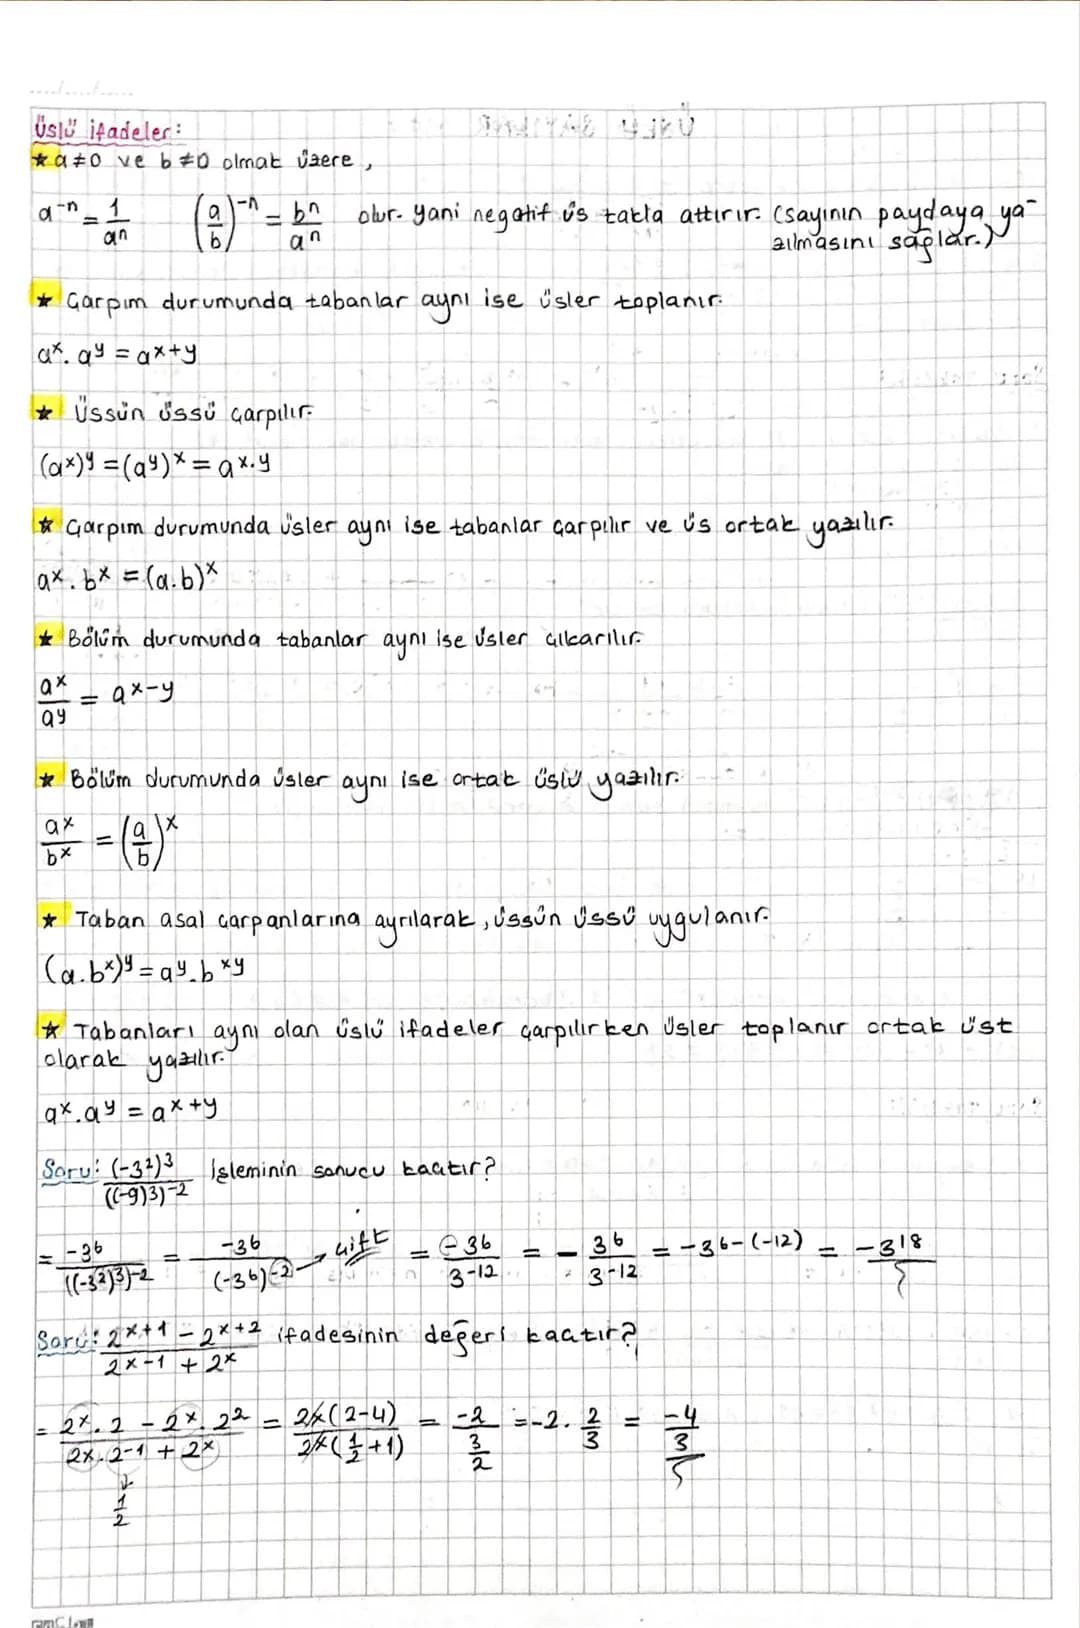 Üslü ifadeler:
★ a≠0 ve b≠0 olmak üzere,
a^-n = 1/a^n (a/b)^-n = b^n/a^n olur. yani negatif üs takla attırır. (sayının paydaya ya-
zılmasını sağlar.)
★ Çarpım durumunda tabanlar aynı ise üsler toplanır.
a^x . a^y = a^x+y
★ Üssün üssü çarpılır.
(a^x)^y = (a^y)^x = a^x.y
★ Çarpım durumunda üsler aynı ise tabanlar çarpılır ve üs ortak yazılır.
a^x . b^x = (a.b)^x
★ Bölüm durumunda tabanlar aynı ise üsler çıkarılır.
a^x/a^y = a^x-y
★ Bölüm durumunda üsler aynı ise ortak üslü yazılır.
a^x/b^x = (a/b)^x
★ Taban asal çarpanlarına ayrılarak, üssün üssü uygulanır.
(a.b^x)^y = a^y.b^xy
★ Tabanları aynı olan üslü ifadeler çarpılırken üsler toplanır ortak üst
olarak yazılır.
a^x.a^y = a^x+y
Soru: (-3^2)^3/((-9)^3)^-2 işleminin sonucu kaçtır?
= -3^6/((-3^2)^3)^-2 = -3^6/(-3^6)^-2 → çift = -3^6/3^-12 = - 3^6/3^-12 = -3^6-(-12) = -3^18
Soru: 2^x+1 - 2^x+2/2^x-1 + 2^x ifadesinin değeri kaçtır?
= 2^x.2 - 2^x.2^2/2^x.2^-1 + 2^x = 2^x(2-4)/2^x(1/2+1) = -2/(3/2) = -2. 2/3 = -4/3
1/2